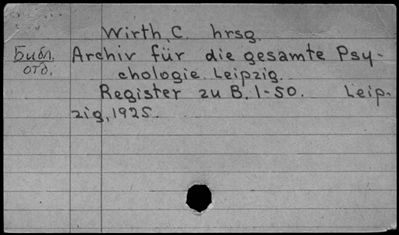 Wirth, C. hrsg.
Библ. Archiv für die gesamte Psy-
отд. chologie. Leipzig.
Register zu B. 1-50. Leip-
zig, 1925.